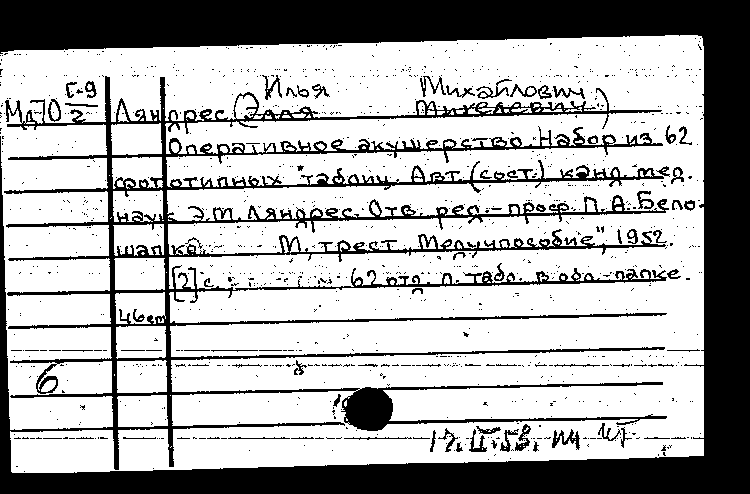 Илья Михайлович
Г-9
Мд70/2 Ляндрес, (Элля Михелевич)
Оперативное акушерство. Набор из 62
фототипных таблиц. Авт. (сост.) канд. мед.
наук Э.М. Ляндрес. Отв. ред. - проф. П.А. Бело-
шапка. М., трест „Медучпособие", 1952.
[2] с.; 62 отд. л. табл. в обл.-папке.
46 cm.
6.
17.II.53.